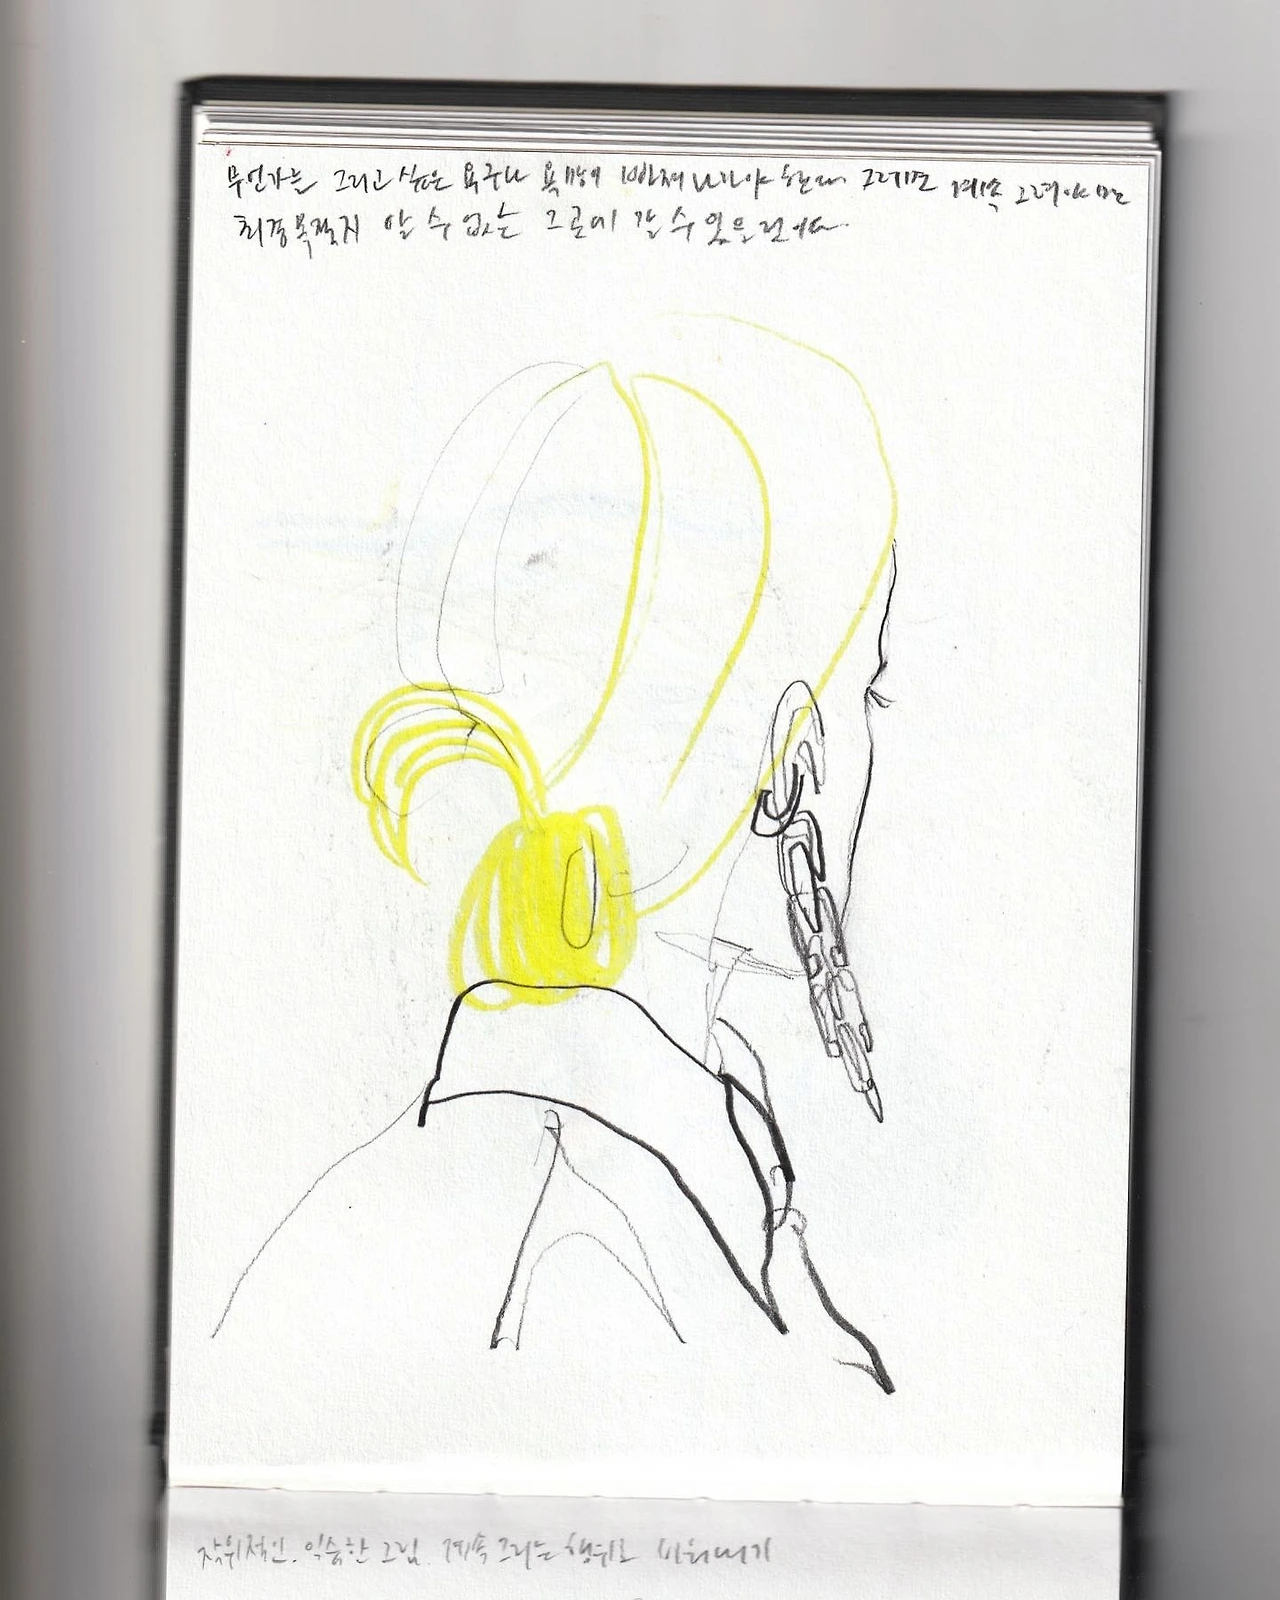 무언가를 그리고 싶은 욕구나 욕망이 빠져나가야 한다 그러면 계속 그려야만
최종목적지 알 수 없는 그곳에 갈 수 있을것이다.
작위적인. 익숙한 그림. 계속 그리는 행위로 비워내기